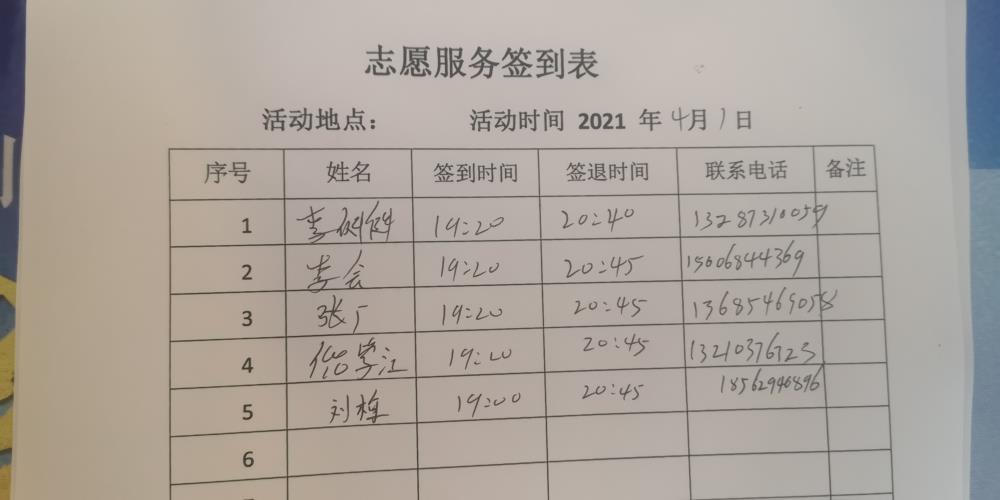 志愿服务签到表
活动地点： 活动时间 2021 年 4月1日
序号 姓名 签到时间 签退时间 联系电话 备注
1 李 19:20 20:40 13287310059
2 李会 19:20 20:45 15006844369
3 张广 19:20 20:45 13685469058
4 学江 19:20 20:45
5 刘梅 19:00 20:45 18562946896
6